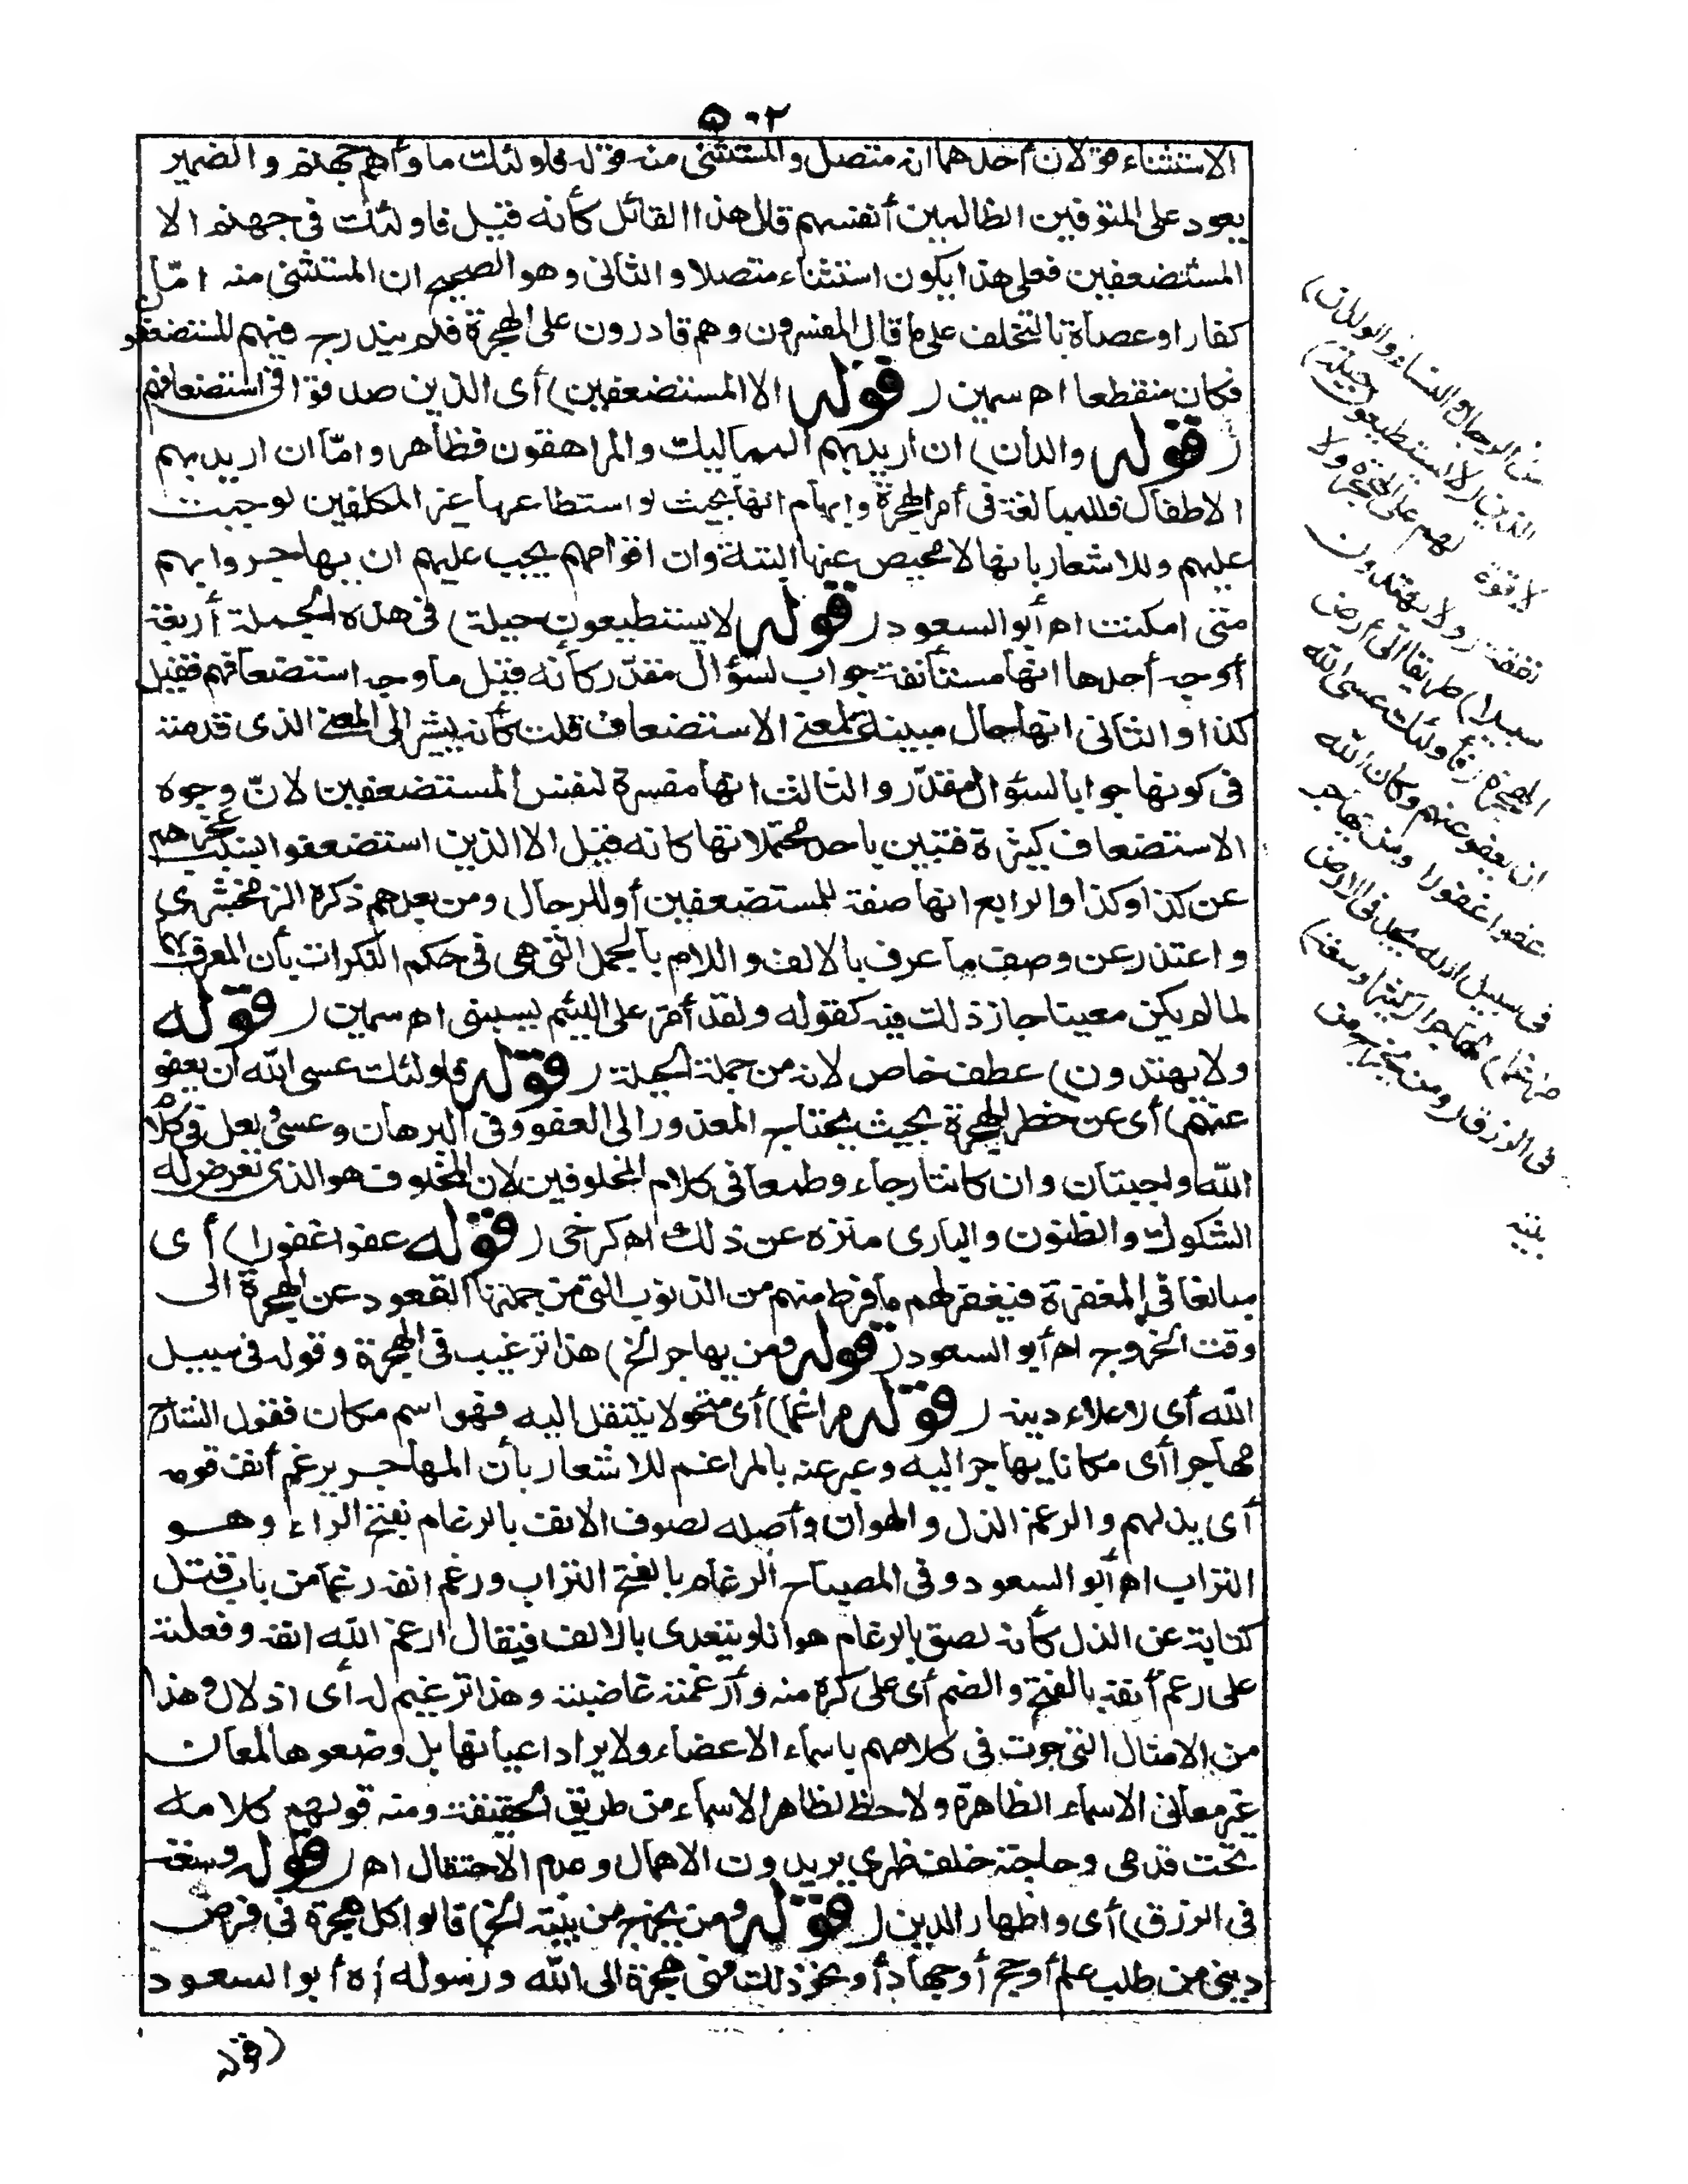 ٥٠٢
الاستثناء قولان أحدهما انه متصل والمستثنى منه قوله فاولئك مأواهم جهنم والضمير
يعود على المتوفين الظالمين أنفسهم قال هذا القائل كأنه قيل فاولئك فى جهنم الا
المستضعفين فعلى هذا يكون استثناء متصلا والثانى وهو الصحيح ان المستثنى منه امّا
كفار او عصاة بالتخلف على ما قال المفسرون وهم قادرون على الهجرة فلم يندرج فيهم المستضعفون
فكان منقطعا اه سمين (قوله الا المستضعفين) أى الذين صدقوا فى استضعافهم
(قوله والدان) ان اريد بهم المماليك والمراهقون فظاهر وامّا ان اريد بهم
الاطفال فللمبالغة فى أمر الهجرة وايهام انها بحيث لو استطاعها غير المكلفين لوجبت
عليهم وللاشعار بانها لا محيص عنها البتة وان اقوامهم يجب عليهم ان يهاجروا بهم
متى امكنت اه أبو السعود (قوله لا يستطيعون حيلة) فى هذه الجملة أربعة
أوجه أحدها انها مستأنفة جواب لسؤال مقدّر كأنه قيل ما وجه استضعافهم فقيل
كذا والثانى انها حال مبينة لمعنى الاستضعاف قلت كأنه يشير الى المعنى الذى قدمته
فى كونها جوابا لسؤال مقدّر والثالث انها مفسرة لنفس المستضعفين لانّ وجوه
الاستضعاف كثيرة فتبين باحد محتملاتها كانه قيل الا الذين استضعفوا بسبب عجزهم
عن كذا وكذا والرابع انها صفة للمستضعفين أو للرجال ومن بعدهم ذكره الزمخشرى
واعتذر عن وصف ما عرف بالالف واللام بالجمل التى هى فى حكم النكرات بأن المعرف بهما
لما لم يكن معينا جاز ذلك فيه كقوله ولقد أمر على اللئيم يسبنى اه سمين (قوله
ولا يهتدون) عطف خاص لانه من جملة الحيلة (قوله فاولئك عسى الله أن يعفو
عنهم) أى عن خطر الهجرة بحيث يحتاج المعذور الى العفو وفى البرهان وعسى ولعل فى كلام
الله واجبتان وان كانتا رجاء وطمعا فى كلام المخلوقين لان المخلوق هو الذى تعرض له
الشكوك والظنون والبارى منزه عن ذلك اه كرخى (قوله عفوا غفورا) أى
مبالغا فى المغفرة فيغفر لهم ما فرط منهم من الذنوب التى من جملتها القعود عن الهجرة الى
وقت الخروج اه أبو السعود (قوله ومن يهاجر الخ) هذا ترغيب فى الهجرة وقوله فى سبيل
الله أى لاعلاء دينه (قوله مراغما) أى متحولا ينتقل اليه فهو اسم مكان فقول الشارح
مهاجرا أى مكانا يهاجر اليه وعبر عنه بالمراغم للاشعار بأن المهاجر يرغم أنف قومه
أى يذلهم والرغم الذل والهوان وأصله لصوق الانف بالرغام بفتح الراء وهو
التراب اه أبو السعود وفى المصباح الرغام بالفتح التراب ورغم انفه رغما من باب قتل
كناية عن الذل كأنه لصق بالرغام هوانا ويتعدى بالالف فيقال ارغم الله انفه وفعلته
على رغم أنفه بالفتح والضم أى على كره منه وأرغمته غاضبته وهذا ترغيم له أى اذلال وهذا
من الامثال التى جرت فى كلامهم باسماء الاعضاء ولا يراد اعيانها بل وضعوها لمعان
غير معانى الاسماء الظاهرة ولا حظ لظاهر الاسماء من طريق الحقيقة ومنه قولهم كلامه
تحت قدمى وحاجته خلف ظهرى يريدون الاهمال وعدم الاحتفال اه (قوله وسعة
فى الرزق) أى واظهار الدين (قوله ومن يخرج من بيته الخ) قالوا كل هجرة فى غرض
دينى من طلب علم أو حج أو جهاد أو نحو ذلك فهى هجرة الى الله ورسوله اه أبو السعود
(قوله
من الرجال والنساء والولدان)
الذين لا يستطيعون حيلة)
لا قوة لهم على الهجرة ولا
نفقة (ولا يهتدون
سبيلا) طريقا الى أرض
الهجرة (فأولئك عسى الله
ان يعفو عنهم وكان الله
عفوا غفورا ومن يهاجر
فى سبيل الله يجد فى الارض
مراغما) مهاجرا (كثيرا وسعة)
فى الرزق (ومن يخرج من
بيته